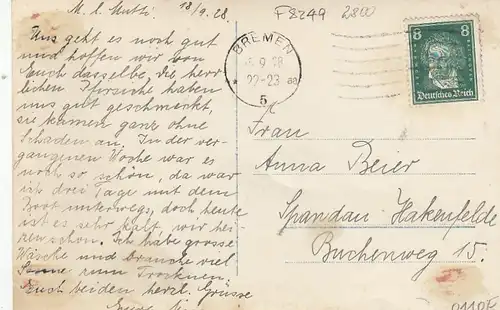 M. l. Mutti! 18/9. 28.
Uns geht es noch gut
und hoffen wir von
Euch dasselbe, die herr-
lichen Pfirsiche haben
uns gut geschmeckt,
sie kamen ganz ohne
Schaden an. In der ver-
gangenen Woche war es
noch so schön, da war
ich drei Tage mit dem
Boot unterwegs, doch heute
ist es sehr kalt, wir hei-
zen schon. Ich habe grosse
Wäsche und brauche viel
Sonne zum Trocknen.
Euch beiden herzl. Grüsse
F8249 2800
BREMEN
9 28
22-23
5
8 8
Deutsches Reich
Frau
Anna Beier
Spandau Hakenfelde
Buchenweg 15.